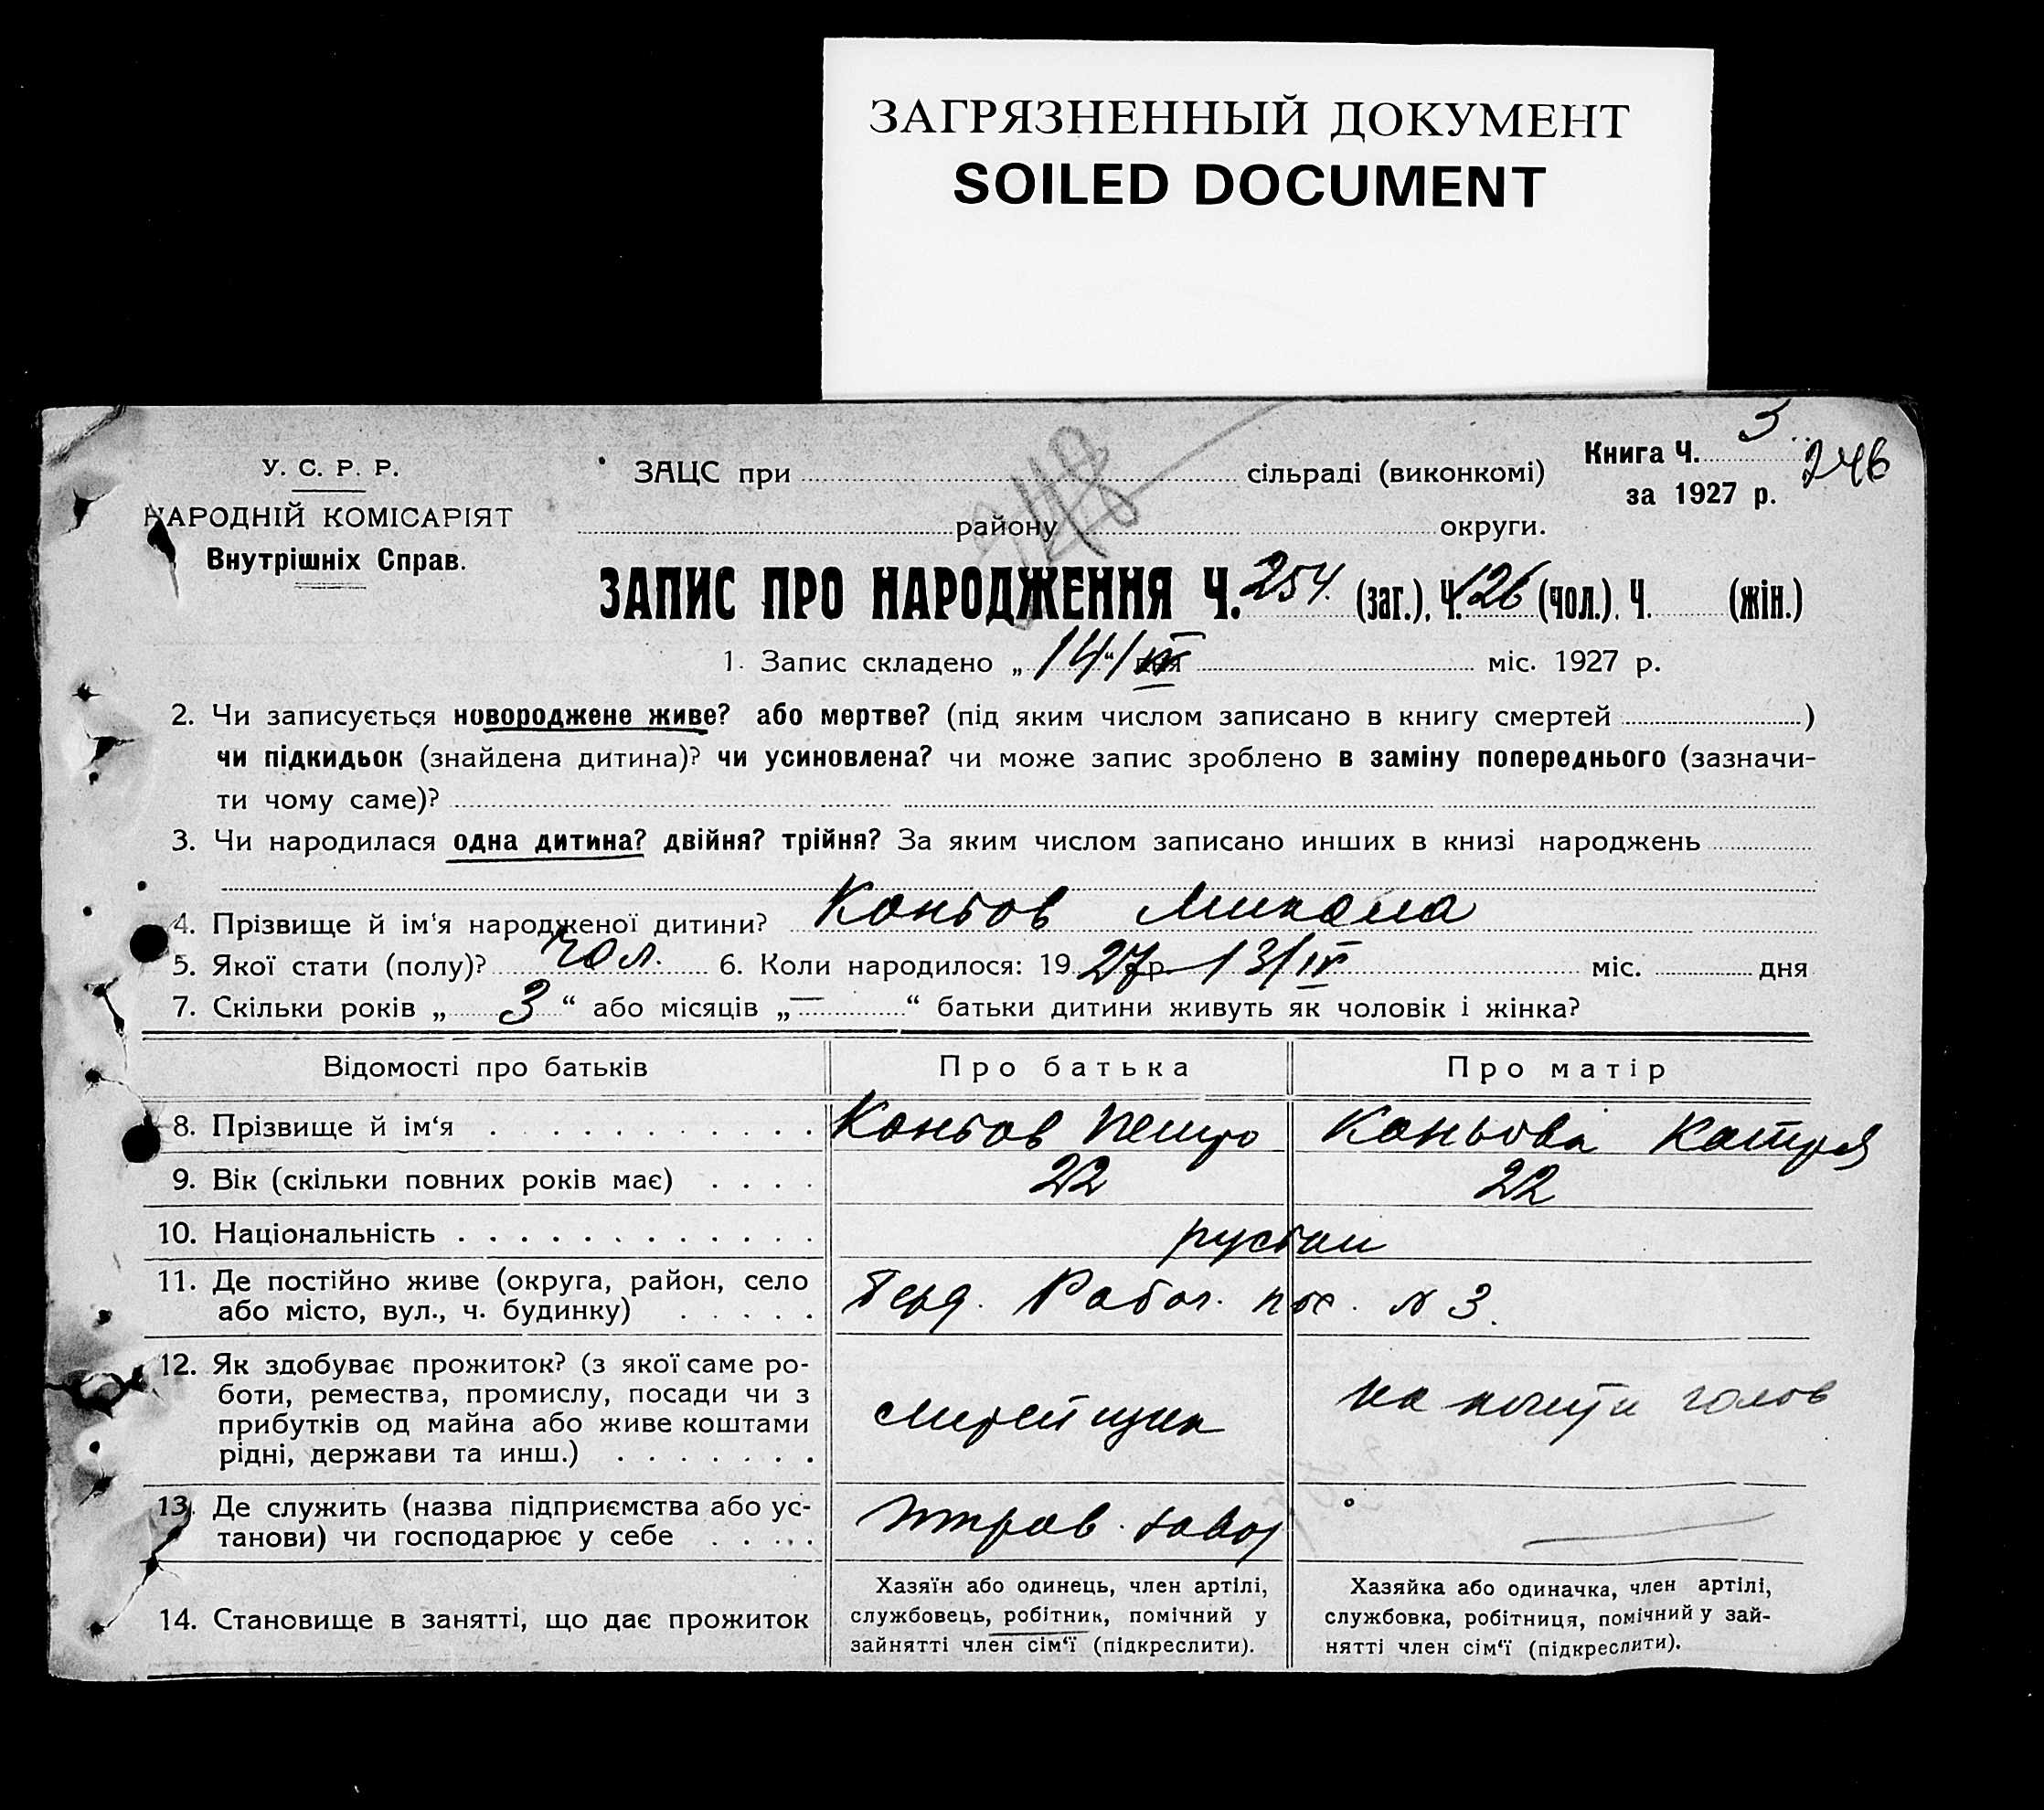 ЗАГРЯЗНЕННЫЙ ДОКУМЕНТ
SOILED DOCUMENT
У. С. Р. Р.
НАРОДНІЙ КОМІСАРІЯТ
Внутрішніх Справ.
ЗАЦС при сільраді (виконкомі)
району округи.
Книга Ч. 3
за 1927 р.
246
248
ЗАПИС ПРО НАРОДЖЕННЯ Ч. 254. (заг.), Ч. 126 (чол.), Ч. (жін.)
1. Запис складено „14“/IV дня міс. 1927 р.
2. Чи записується новороджене живе? або мертве? (під яким числом записано в книгу смертей )
чи підкидьок (знайдена дитина)? чи усиновлена? чи може запис зроблено в заміну попереднього (зазначи-
ти чому саме)?
3. Чи народилася одна дитина? двійня? трійня? За яким числом записано инших в книзі народжень
4. Прізвище й ім‘я народженої дитини? Коньов Микола
5. Якої стати (полу)? чол. 6. Коли народилося: 1927 р. 13/IV міс. дня
7. Скільки років „ 3 “ або місяців „ — “ батьки дитини живуть як чоловік і жінка?
Відомості про батьків Про батька Про матір
8. Прізвище й ім‘я Коньов Петро Коньова Катря
9. Вік (скільки повних років має) 22 22
10. Національність
11. Де постійно живе (округа, район, село
або місто, вул., ч. будинку) Берд. Рабоч. пос. № 3.
12. Як здобуває прожиток? (з якої саме ро-
боти, ремества, промислу, посади чи з
прибутків од майна або живе коштами
рідні, держави та инш.)
13. Де служить (назва підприємства або ус-
танови) чи господарює у себе
14. Становище в занятті, що дає прожиток
Хазяїн або одинець, член артілі,
службовець, робітник, помічний у
зайнятті член сім‘ї (підкреслити).
Хазяйка або одиначка, член артілі,
службовка, робітниця, помічний у зай-
нятті член сім‘ї (підкреслити).